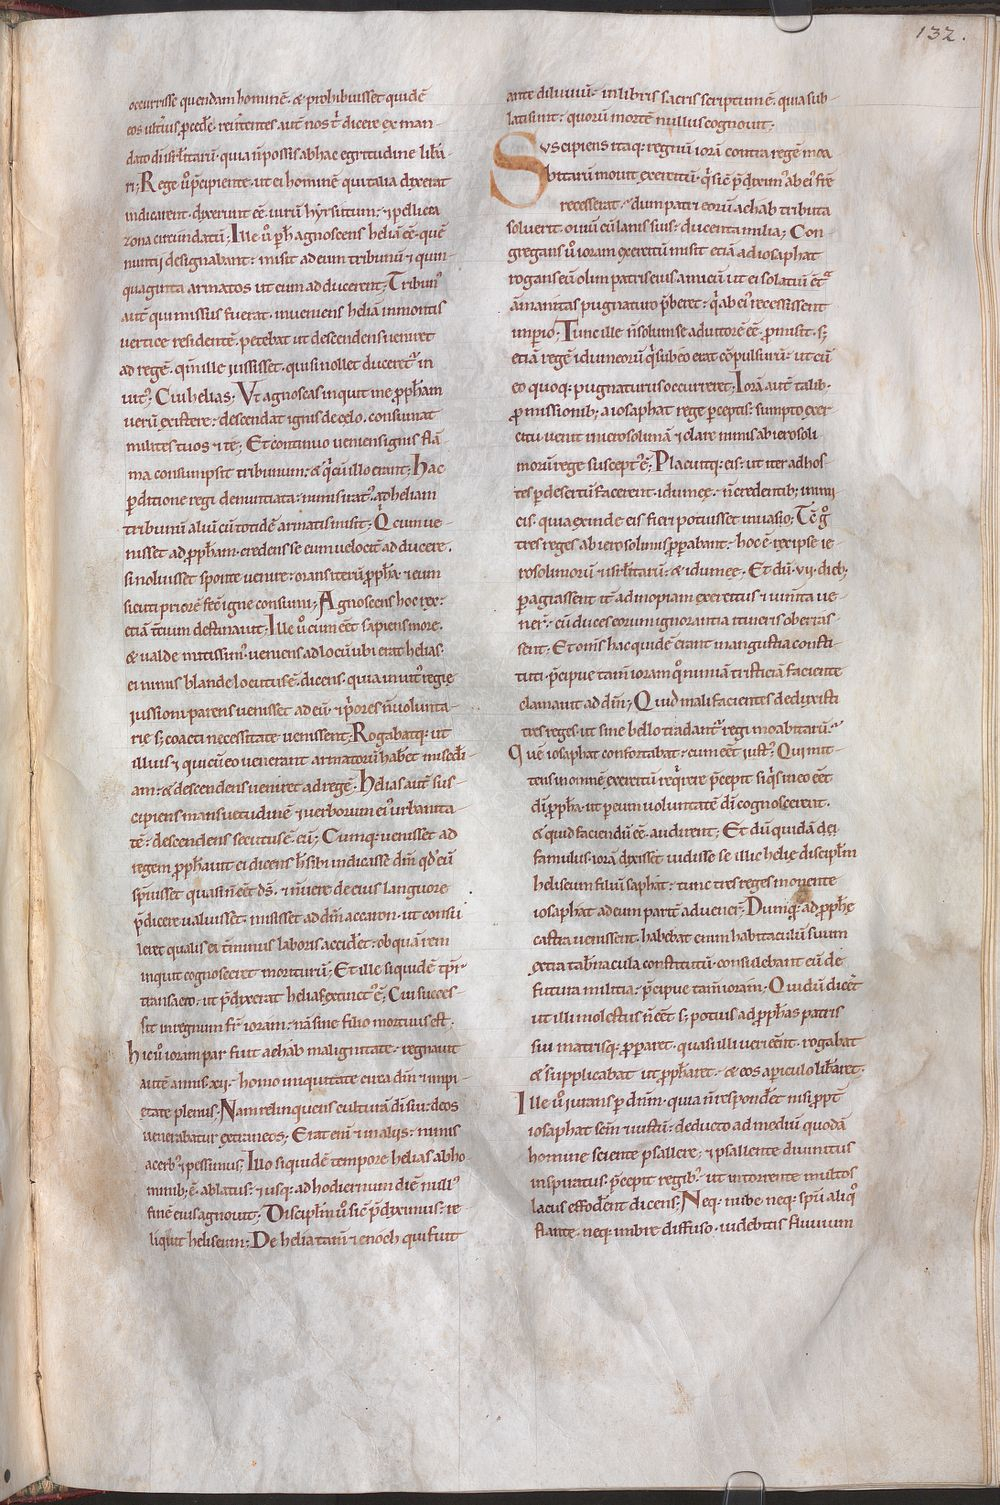 132.
occurrisse quendam hominē. & prohibuisset quidē
eos ulti'us p̄cede. reuertentes autē nos t' dicere ex man-
dato di isrl'itarū. quia n̄ possis ab hac egritudine libā-
ri; Rege u' p̄cipiente. ut ei hominē qui talia dixerat
indicarent. dixerunt ēē. uirū hyrsutum. & pellicia
zona circundatū; Ille u' ph' agnoscens heliā ēē. quē
nuntii designabant. misit ad eum tribunū & quin-
quaginta armatos ut eum adducerent; Tribun'
autē qui missus fuerat. inueniens heliā in montis
uertice residentē. petebat ut descendens ueniret
ad regē. qm̄ ille iussisset. qui si nollet duceret' in
uit'. Cui helias; Vt agnoscas inquit me p̄ph'am
uerū existere. descendat ignis de celo. consumat
milites tuos & te; Et continuo ueniens ignis flā-
ma consumpsit tribunum. & q̄ cū illo erant; Hac
p̄ditione regi denuntiata. nimis irat'. ad heliam
tribunū aliū cū totidē armatis misit; Q̄ cum ue-
nisset ad p̄ph'am. credens se eum uelocit' adducere.
si noluisset sponte uenire. orans iterū p̄ph'a. & eum
sicuti priorē fec' igne consumi; Agnoscens hoc rex.
etiā t'cium destinauit; Ille u' cum eēt sapiens more.
& ualde mitissim'. ueniens ad locū ubi erat helias.
ei nimis blande locutus ē. dicens. quia inuit' regię
iussioni parens uenisset ad eū. & p'ores n̄ uolunta-
rie s; coacti necessitate uenissent; Rogabatq; ut
illius & qui cū eo uenerant armatorū hab'et misedi-
am. & descendens ueniret ad regē. Helias autē sus-
cipiens mansuetudinē & uerborum ei' urbanita-
tē. descendens secutus ē. eū; Cumq; uenisset ad
regem p̄ph'auit ei dicens h' sibi indicasse dn̄m. qd' eū
spreuisset quasi n̄ eēt d̄s. & n̄ uere de eius languore
p̄dicere ualuisset. misisset ad dm̄ accaron. ut consu-
leret qualis ei t'minus laboris accidet. ob quā rem
inquit cognosceret moriturū; Et ille siquidē tp̄r'
transacto. ut p̄dixerat helias extinct' ē; Cui succes-
sit in regnum fr' ioram. nā sine filio mortuus est.
hic u' ioram par fuit achab malignitate. regnauit
autē annis. xii. homo iniquitate circa dm̄ & impi-
etate plenus. Nam relinquens culturā di sui. deos
uenerabatur extraneos; Erat enī & in aliis. nimis
acerb' & pessimus; Illo siquidē tempore helias ab ho-
minib; ē. ablatus. & usq; ad hodiernum diē null'
finē eius agnouit; Discipl'm u' sic p̄diximus. re-
liquit heliseum; De helia tam̄ & enoch qui fuit
ante diluuiū. in libris sacris scriptum ē. quia sub-
lati sunt. quorū mortē nullus cognouit;
Suscipiens itaq; regnū iorā contra regē moa-
bitarū mouit exercitū. q̄ sic p̄diximus ab ei' fr̄e
recesserat. dum patri eorū achab tributa
soluerit ouiū cū lanis suis. ducenta milia; Con-
gregans u' ioram exercitū misit etiā ad iosaphat
rogans eū olim patris eius amicū ut ei solatiū ct̄ª
āmanitas pugnaturo p̄beret. q̄ ab ei' recessissent
imperio; Tunc ille n̄ solum se adiutorē ēē. p̄misit. s;
etiā regē idumeorū q̄ sub eo erat cōpulsurū. ut cū
eo quoq; pugnaturus occurreret; Iorā autē talib;
p̄missionib; a iosaphat rege p̄ceptis. sumpto exer-
citu uenit in ierosolimā & clare nimis ab ierosoli-
morū rege suscept' ē; Placuitq; eis. ut iter ad hos-
tes p̄ desertū facerent. idumeę. n̄ credentib; inimi-
cis. quia exinde eis fieri potuisset inuasio; Tē g̊
tres reges ab ierosolimis p̄parabant. hoc ē rex ipse ie-
rosolimorū & isrl'itarū. & idumeę. Et dū. vii. dieb;
p̄agrassent it' ad inopiam exercitus & iumta ue-
ner'. cū duces eorum ignorantia itineris oberras-
sent. Et om̄s hac quidē erant in angustia consti-
tuti. p̄cipue tam̄ ioram q' nimiā tristiciā faciente
clamauit ad dm̄; Quid mali facientes deduxisti
tres reges. ut sine bello tradant' regi moabitarū.
Quē iosaphat confortabat. cum eēt iust'; Qui mit-
tens in omnē exercitū reqrere p̄cepit. si q̄s in eo eēt
di p̄ph'a. ut p̄ eum uoluntatē di cognoscerent.
& quid faciendū ēē. audirent; Et dū quidā dei
famulus iorā dixisset uidisse se illic helię discipl'm
heliseum filiū saphat. tunc tres reges monente
iosaphat ad eum partt' aduener'; Dumq; ad p̄ph'ę
castra uenissent. habebat enim habitaculū suum
extra tab'nacula constitutū. consulebant eū de
futura militia. p̄cipue tam̄ ioram; Qui dū dicēt
ut illi molestus n̄ eēt s; potius ad p̄ph'as patris
sui matrisq; p̄paret. quasi illi ueri eēnt. rogabat
& supplicabat ut p̄ph'aret. & eos a periculo lib'aret.
Ille u' iurans p̄ dn̄m. quia n̄ respondet nisi pp̄t
iosaphat sc̄m & iustū. deducto ad mediū quodā
homine sciente psallere. & psallente diuinitus
inspiratus. p̄cepit regib'. ut in torrente multos
lacus effoderent dicens; Neq; nube neq; spū aliq'
flante. neq; imbre diffuso. uidebitis fluuium